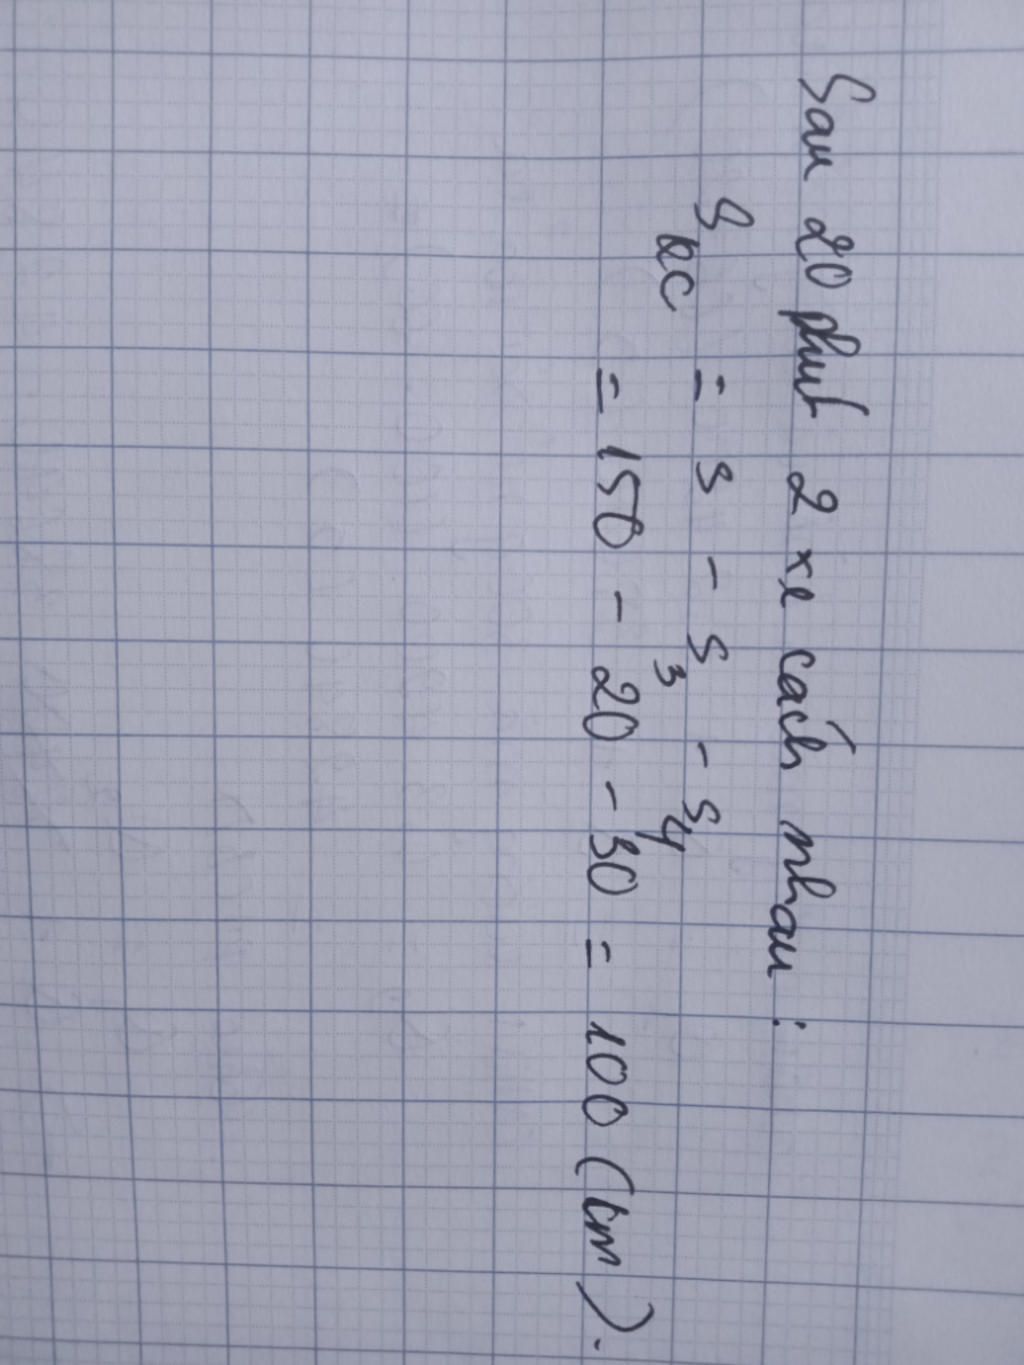 Sau 20 phút 2 xe cách nhau :
S_kc = s - s_3 - s_4
= 150 - 20 - 30 = 100 (km).